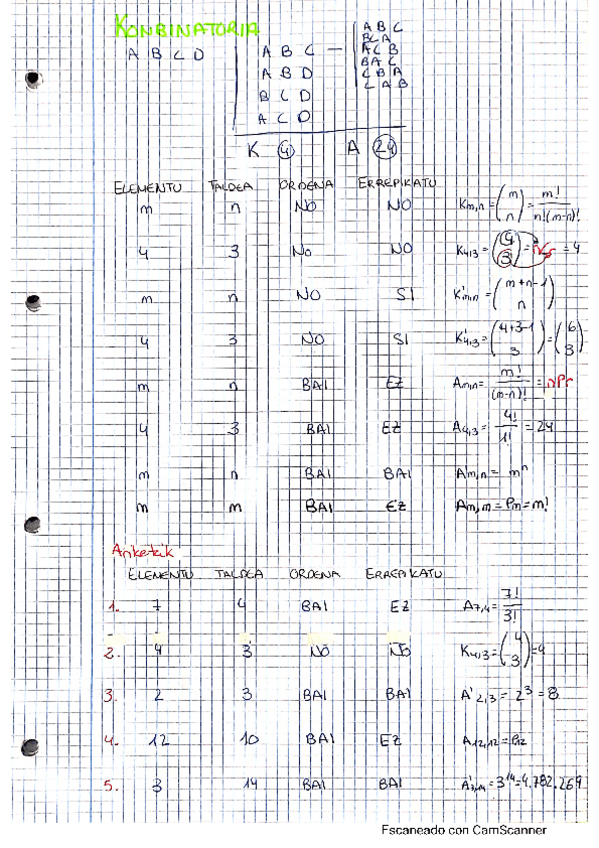 KONBINATORIA
A B C D
A B C — A B C
B C A
A C B
B A C
C B A
C A B
A B D
B C D
A C D
K 4 A 24
ELEMENTU TALDEA ORDENA ERREPIKATU
m n NO NO Km,n = (m n) = m! / n!(m-n)!
4 3 NO NO K4,3 = (4 3) = nCr = 4
m n NO SI K'm,n = (m+n-1 n)
4 3 NO SI K'4,3 = (4+3-1 3) = (6 3)
m n BAI EZ Am,n = m! / (m-n)! = nPr
4 3 BAI EZ A4,3 = 4! / 1! = 24
m n BAI BAI Am,n = mⁿ
m m BAI EZ Am,m = Pm = m!
Ariketak
ELEMENTU TALDEA ORDENA ERREPIKATU
1. 7 4 BAI EZ A7,4 = 7! / 3!
2. 4 3 NO NO K4,3 = (4 3) = 4
3. 2 3 BAI BAI A'2,3 = 2³ = 8
4. 12 10 BAI EZ A12,12 = P12
5. 3 14 BAI BAI A'3,14 = 3¹⁴ = 4.782.269
Escaneado con CamScanner